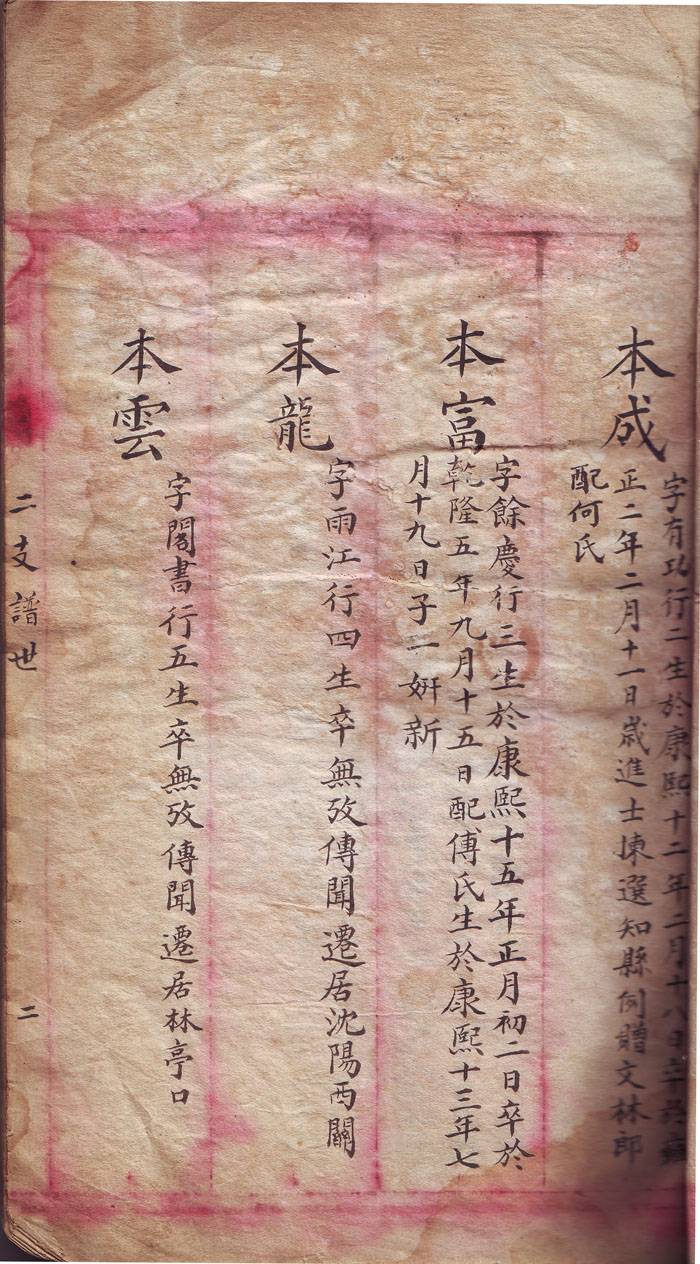 本成
字有功行二生於康熙十二年二月十八日卒於雍
正二年二月十一日歲進士揀選知縣例贈文林郎
配何氏
本富
字餘慶行三生於康熙十五年正月初二日卒於
乾隆五年九月十五日配傅氏生於康熙十三年七
月十九日子二妍新
本龍
字雨江行四生卒無攷傳聞遷居沈陽西關
本雲
字閣書行五生卒無攷傳聞遷居林亭口
二支譜世
二